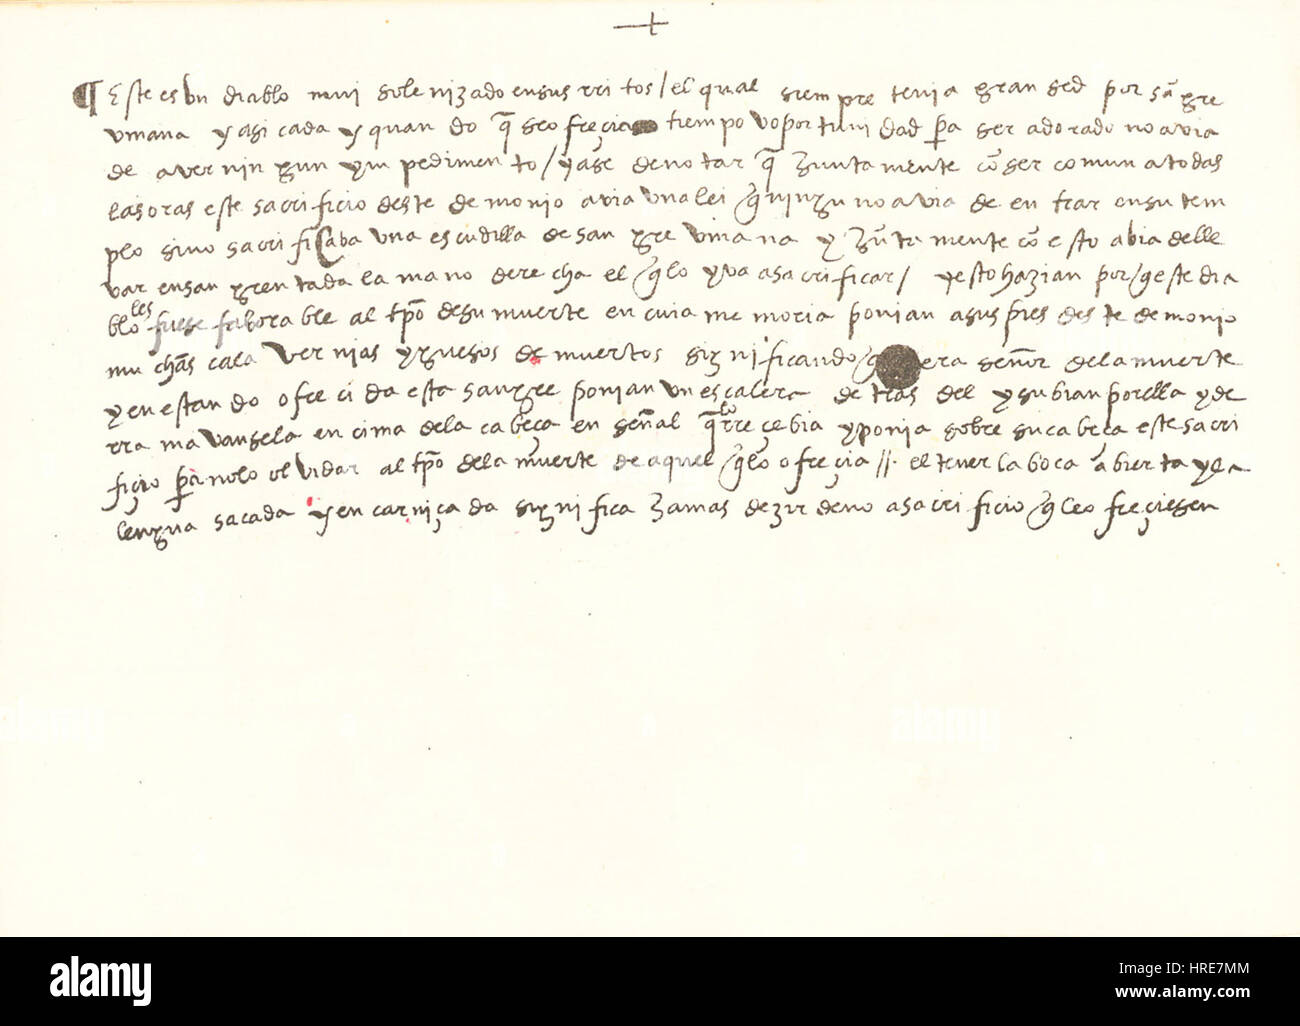 ¶ Este es Un diablo mui solenizado en sus rritos / el qual siempre tenia gran sed por sãgre
vmana y asi cada y quan do q̃ se ofreçia tiempo v oportuni dad p̃a ser adorado no avia
de aver nin gun ym pedimen to / y ase de notar q̃ Zuntamente cõ ser comun a todas
las oras este sacrificio deste de monio avia una lei q̃ ninguno avia de en trar en su tem
plo sino sacri ficaba una escudilla de san gre vmana y Zũta mente cõ esto abia delle
var ensan grentada la mano derecha el q̃ lo yva a sacrificar / y esto hazian por q̃ este dia
blo les fuese faborable al tp̃o de su muerte en cuia me moria ponian a sus pies des te demonio
mu chas cala vernias y guesos de muertos sig nificando q̃ era señor de la muerte
y en estan do ofre ci da esta sangre ponian un escalera de tras del y subian por ella y de
rra ma van sela en cima de la cabeça en señal q̃ lo rreçebia y ponia sobre su cabeca este sacri
fiçio p̃a no lo ol vidar al tp̃o de la muerte de aquel q̃ lo ofreçia //. el tener la boca abierta y la
lengua sacada y en carniçada significa Zamas dezir de no a sacri ficio q̃ le ofreçiesen
alamy
alamy
alamy
Image ID: HRE7MM
www.alamy.com